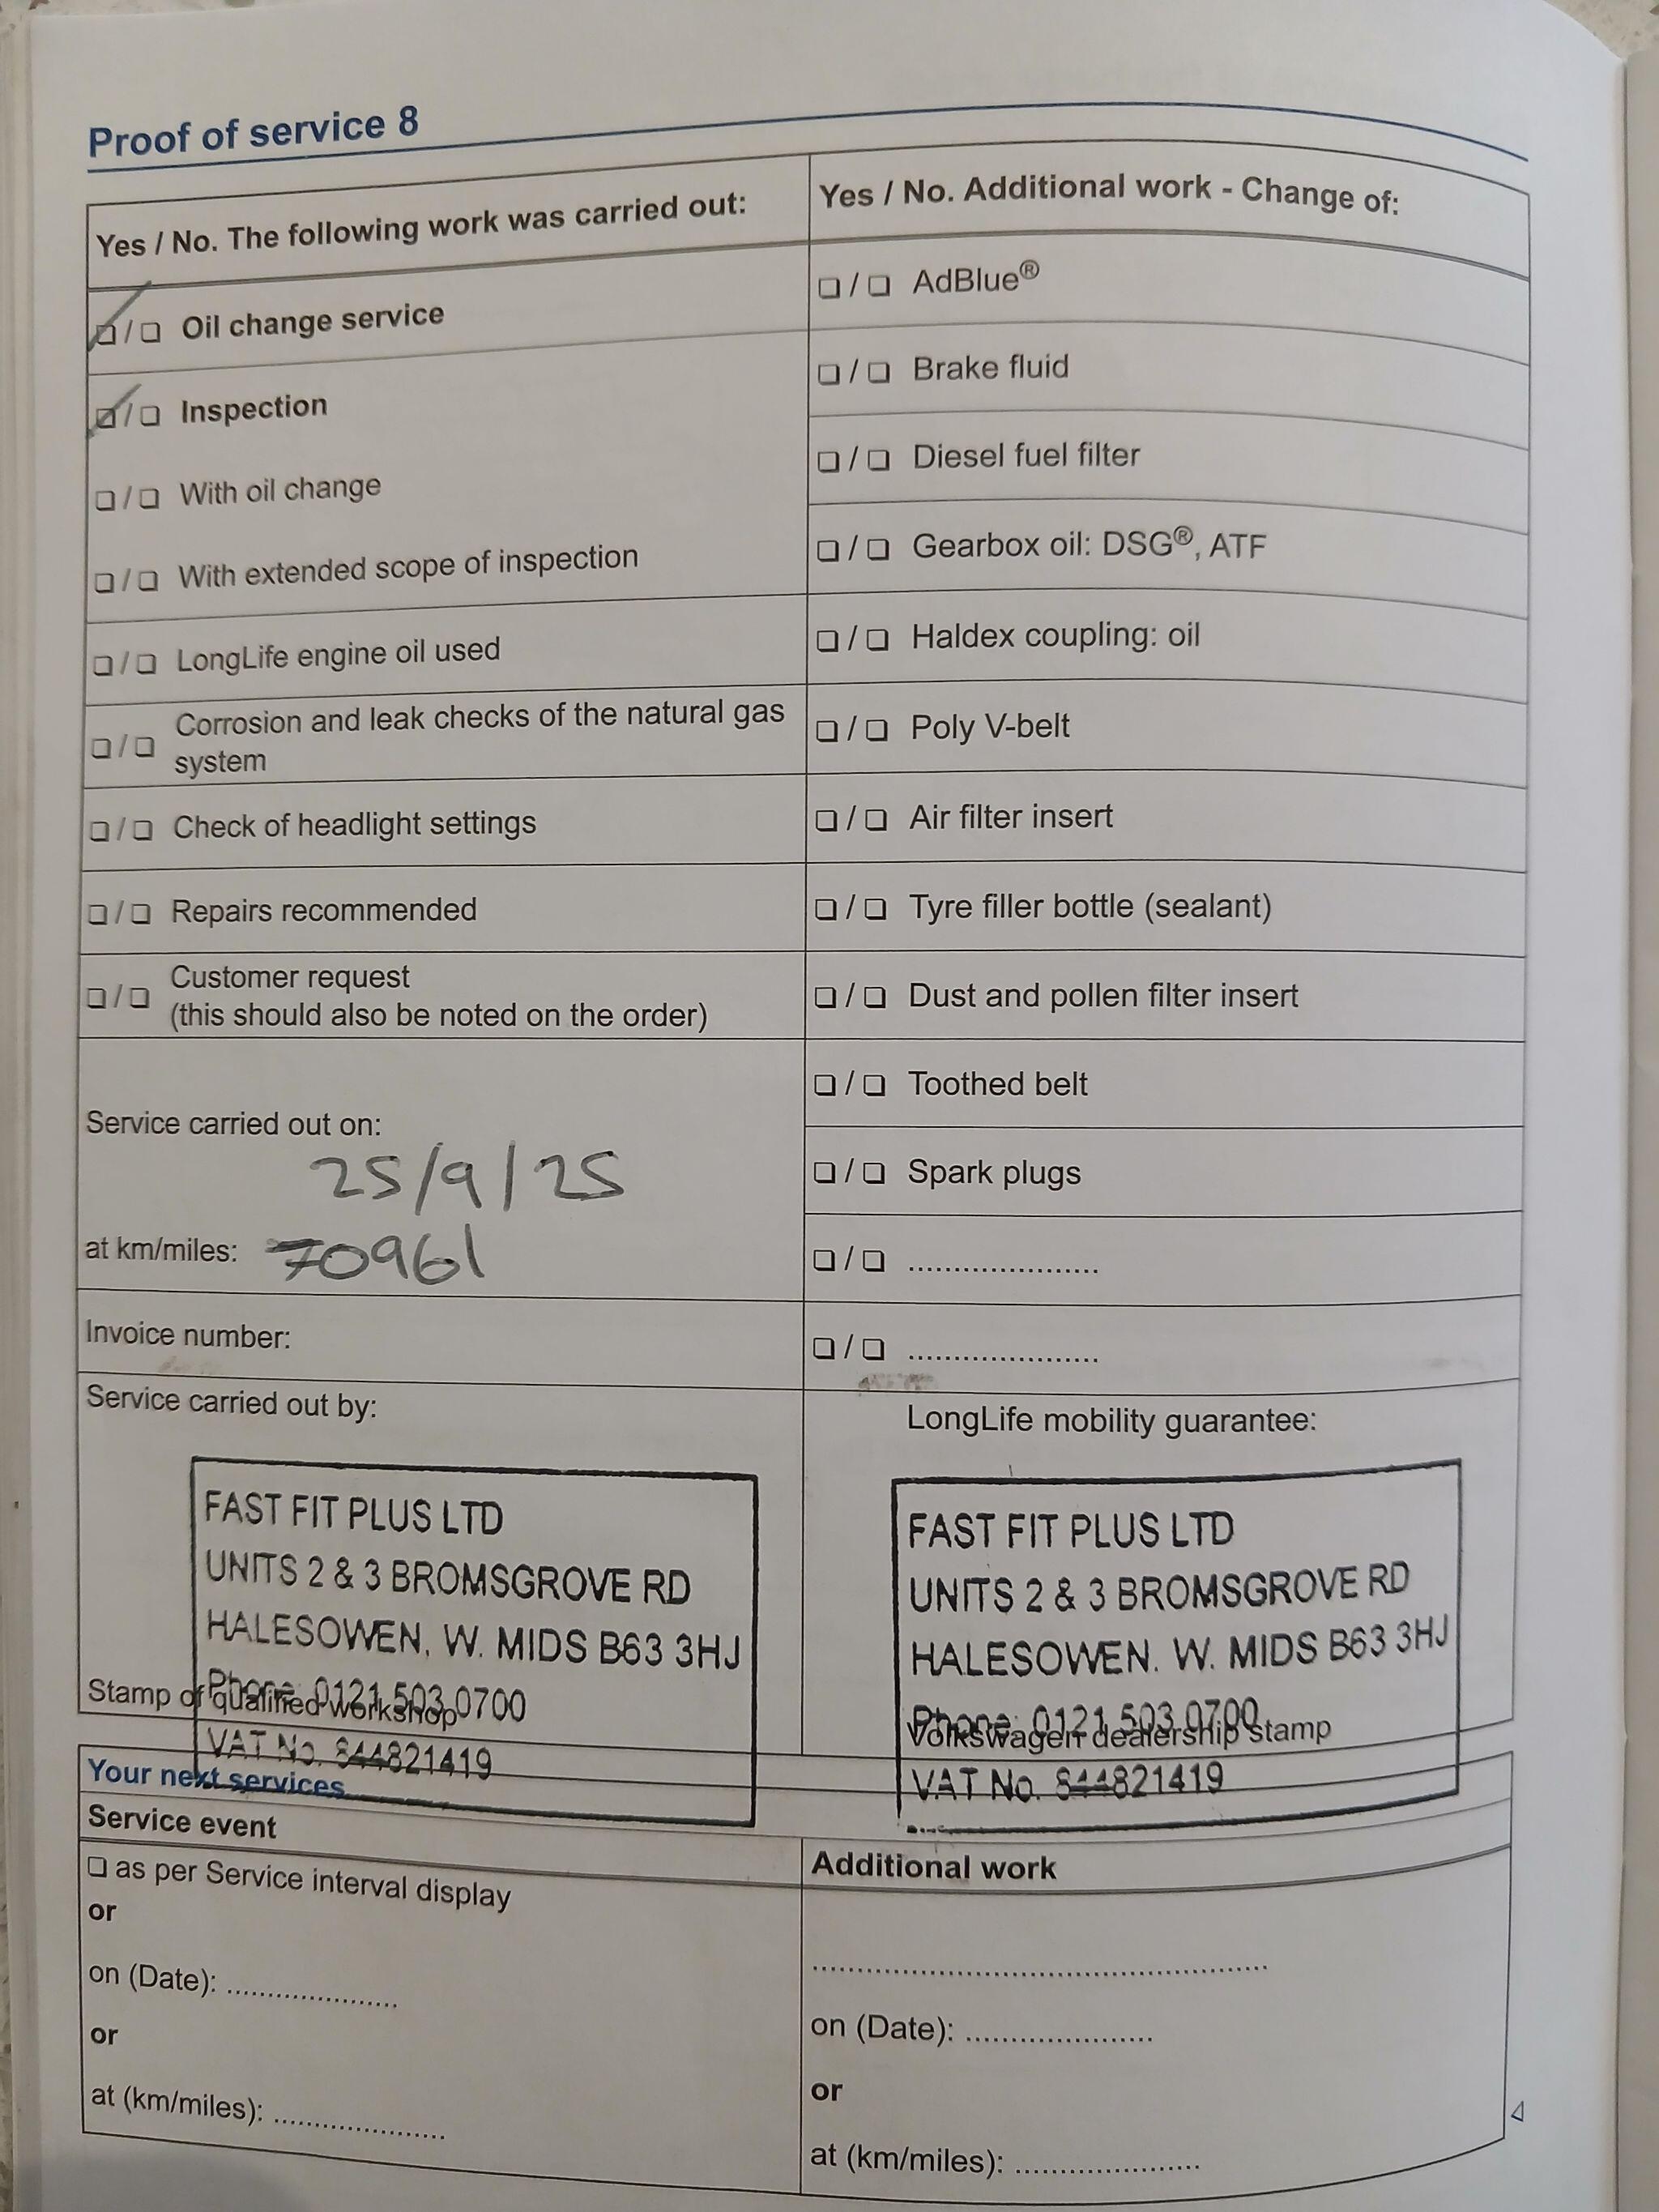 Proof of service 8
Yes / No. The following work was carried out:
❏ / ❏ Oil change service
❏ / ❏ Inspection
❏ / ❏ With oil change
❏ / ❏ With extended scope of inspection
❏ / ❏ LongLife engine oil used
❏ / ❏ Corrosion and leak checks of the natural gas
system
❏ / ❏ Check of headlight settings
❏ / ❏ Repairs recommended
❏ / ❏ Customer request
(this should also be noted on the order)
Service carried out on:
25/9/25
at km/miles: 70961
Invoice number:
Service carried out by:
FAST FIT PLUS LTD
UNITS 2 & 3 BROMSGROVE RD
HALESOWEN, W. MIDS B63 3HJ
Phone: 0121 503 0700
Stamp of qualified workshop
VAT No. 844821419
Yes / No. Additional work - Change of:
❏ / ❏ AdBlue®
❏ / ❏ Brake fluid
❏ / ❏ Diesel fuel filter
❏ / ❏ Gearbox oil: DSG®, ATF
❏ / ❏ Haldex coupling: oil
❏ / ❏ Poly V-belt
❏ / ❏ Air filter insert
❏ / ❏ Tyre filler bottle (sealant)
❏ / ❏ Dust and pollen filter insert
❏ / ❏ Toothed belt
❏ / ❏ Spark plugs
❏ / ❏ .....................
❏ / ❏ .....................
LongLife mobility guarantee:
FAST FIT PLUS LTD
UNITS 2 & 3 BROMSGROVE RD
HALESOWEN. W. MIDS B63 3HJ
Phone: 0121 503 0700
Volkswagen dealership stamp
VAT No. 844821419
Your next services
Service event
❏ as per Service interval display
or
on (Date): ...................
or
at (km/miles): ...................
Additional work
..................................................
on (Date): .....................
or
at (km/miles): .....................